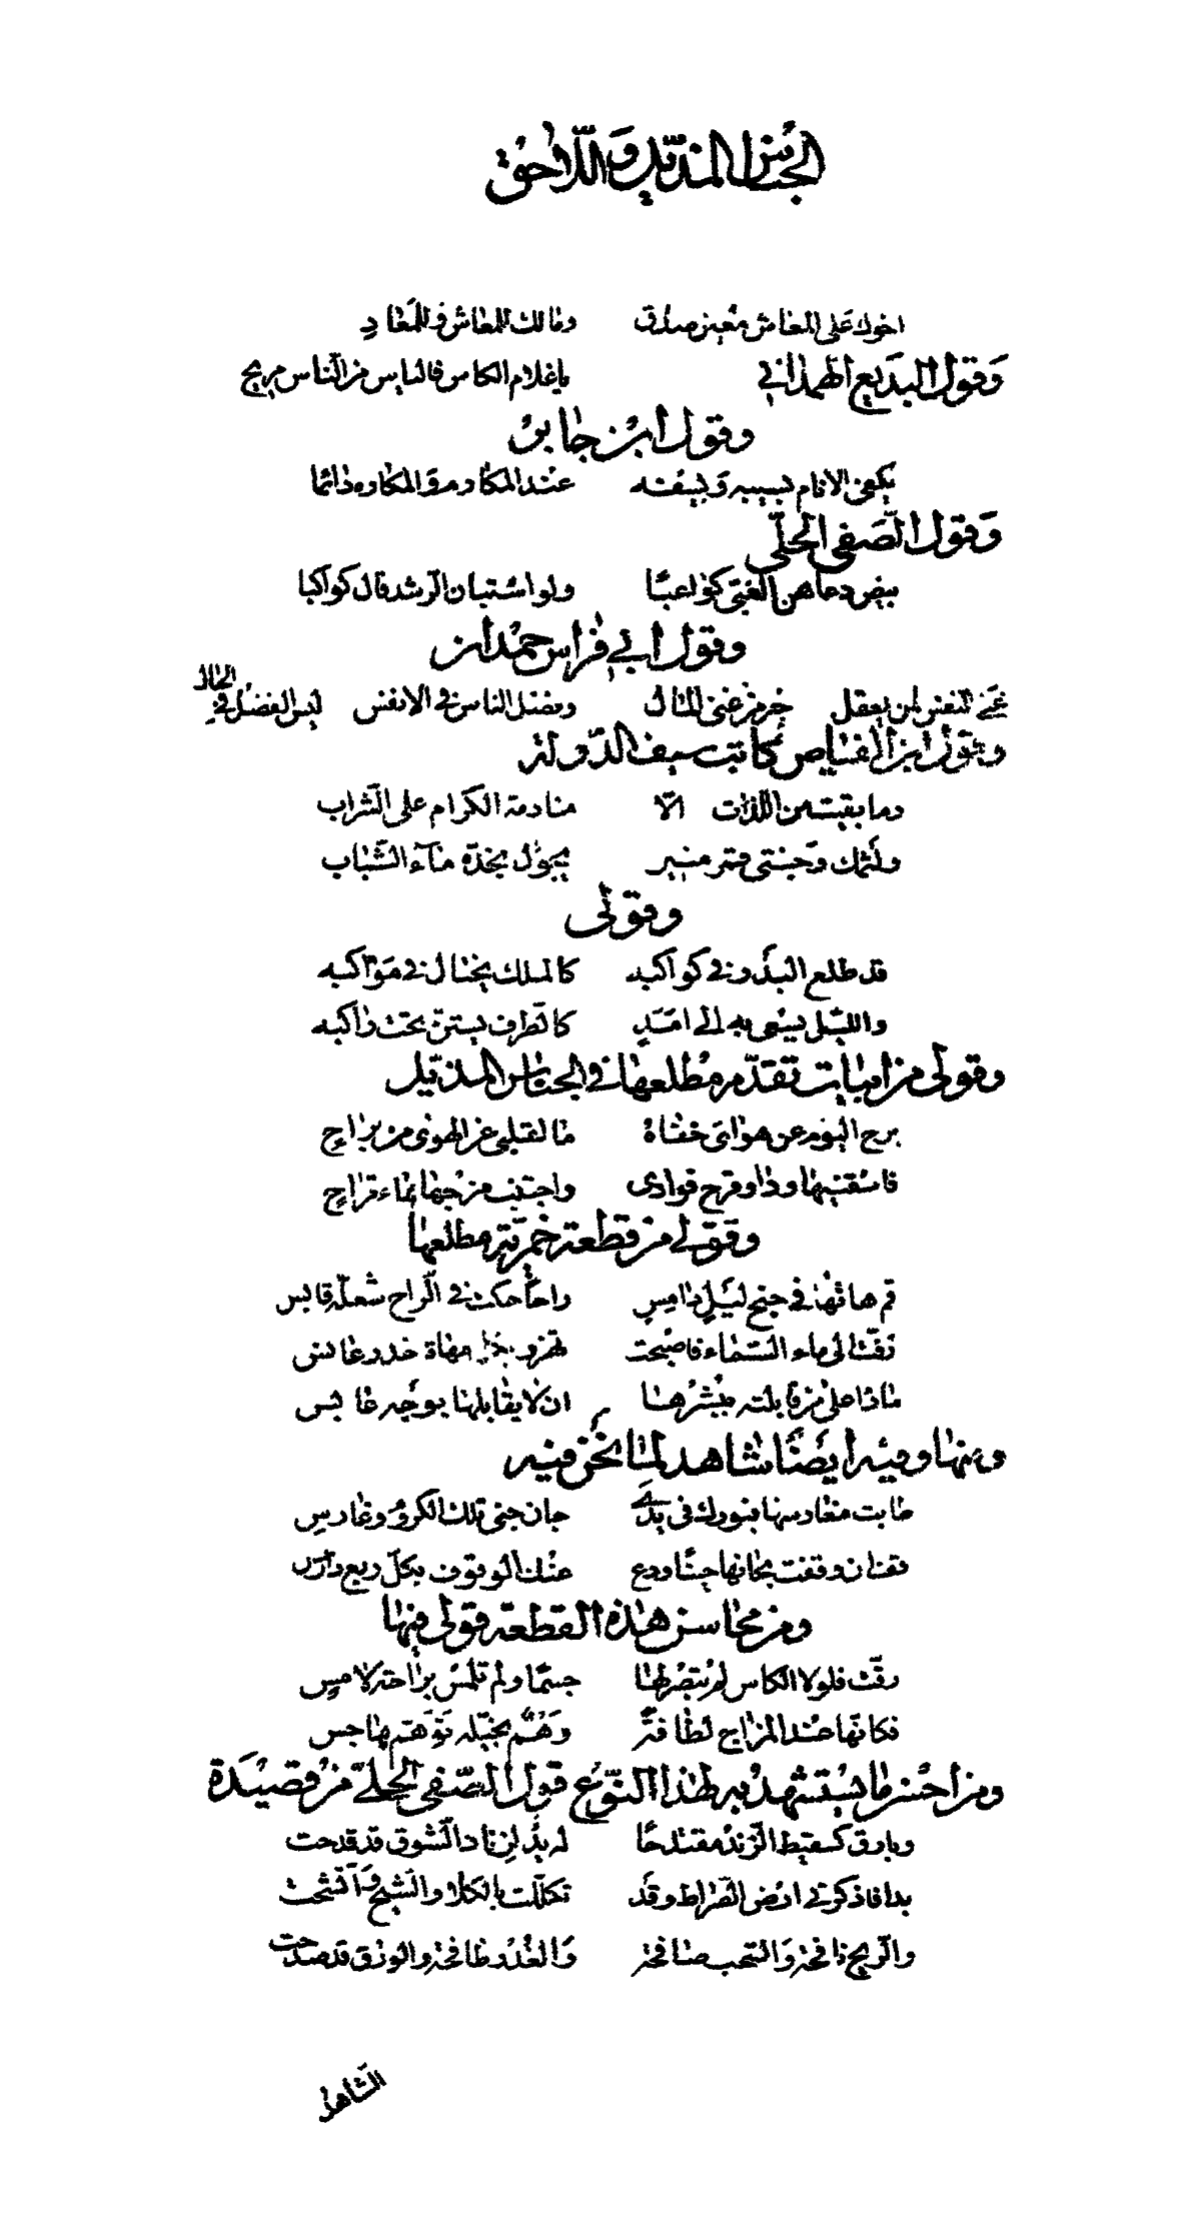 الجناس المذيّل واللّاحق
اخوك على المعاش معين صدق ومالك للمعاش وللمعاد
وقول البديع الهمذاني يا غلام الكاس فالياس من الناس مريح
وقول ابن جابر
يكفي الانام بسيبه وبسيفه عند المكارم والمكاره دائما
وقول الصّفي الحلّي
بيض دعاهن الغبيّ كواعبًا ولو استبان الرشد قال كواكبا
وقول ابي فراس حمدان
غنى النفس لمن يعقل خير من غنى المال وفضل الناس في الانفس ليس الفضل في الحال
وقول ابن الفياض كاتب سيف الدّولة
وما بقيت من اللذات الّا منادمة الكرام على الشّراب
ولثمك وجنتي قمر منير يجول بخدّه ماء الشّباب
وقولي
قد طلع البدر في كواكبه كالملك يختال في مواكبه
والليل يسعى به الى امد كالطرف يستنّ تحت راكبه
وقولي من ابيات تقدّم مطلعها في الجناس المذيّل
برح اليوم عن هواي خفاه ما لقلبي عن الهوى من براح
فاسقنيها وداو قرح فوادي واجتنب مزجها بماء قراح
وقولي من قطعة خمريّة مطلعها
قم هاتها في جنح ليل دامس راحًا حكت في الراح شعلة قابس
ماذا على من قابلته ببشرها ان لا يقابلها بوجه عابس
ومنها وفيه ايضًا شاهد لما نحن فيه
طابت مغارسها فبورك في يدي جان جنى تلك الكروم وغارس
عنك الوقوف بكلّ ربع دارس
ومن محاسن هذه القطعة قولي فيها
رقّت فلولا الكاس لم تبصر لها جسمًا ولم تلمس براحة لامس
فكانّها عند المزاج لطافةً وهمٌ يخيّله توّهم هاجس
ومن احسن ما يستشهد به لهذا النّوع قول الصّفي الحلّي من قصيدة
وبارق كسقيط الزند مقتدحًا له يد لزناد الشوق قد قدحت
بدا فاذكرني ارض الصّراط وقد تكلّلت بالكلا والشيح واتّشحت
والريح نافحة والسحب صافحة والغدر طافحة والورق قد صدحت
الشاهد